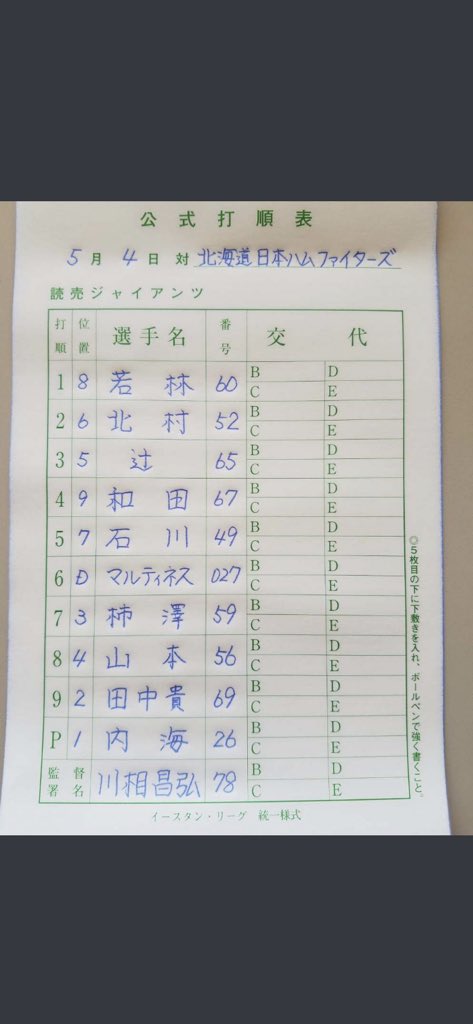 公式打順表
5月4日 対 北海道日本ハムファイターズ
読売ジャイアンツ
打順 位置 選手名 番号 交代
1 8 若林 60 B D C E
2 6 北村 52 B D C E
3 5 辻 65 B D C E
4 9 和田 67 B D C E
5 7 石川 49 B D C E
6 D マルティネス 027 B D C E
7 3 柿澤 59 B D C E
8 4 山本 56 B D C E
9 2 田中貴 69 B D C E
P 1 内海 26 B D C E
監督署名 川相昌弘 78 B D C E
◎5枚目の下に下敷きを入れ、ボールペンで強く書くこと。
イースタン・リーグ 統一様式